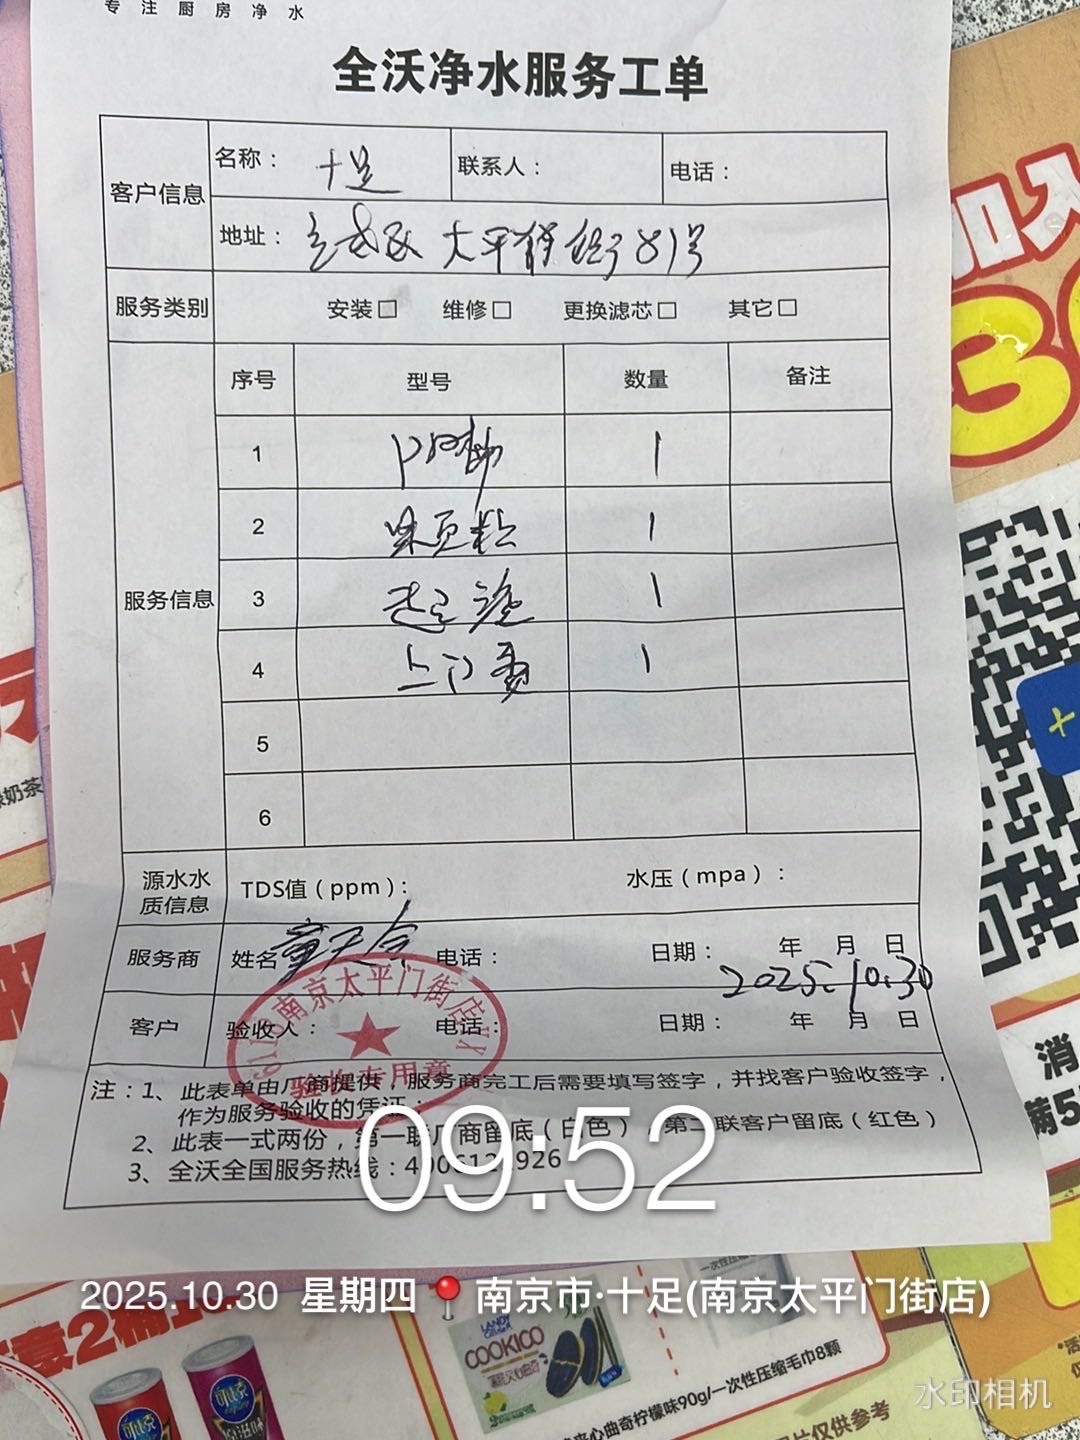 专注厨房净水
全沃净水服务工单
客户信息 名称： 十足 联系人： 电话：
地址： 玄武区 太平门街 81号
服务类别 安装□ 维修□ 更换滤芯□ 其它□
服务信息 序号 型号 数量 备注
1 PP棉 1
2 颗粒 1
3 超滤 1
4 上门费 1
5
6
源水水质信息 TDS值（ppm）： 水压（mpa）：
服务商 姓名 电话： 日期： 年 月 日
2025.10.30
客户 验收人： 电话： 日期： 年 月 日
南京太平门街店
验收专用章
注：1、此表单由厂商提供，服务商完工后需要填写签字，并找客户验收签字，
作为服务验收的凭证；
2、此表一式两份，第一联厂商留底（白色） 第二联客户留底（红色）
3、全沃全国服务热线：
09:52
2025.10.30 星期四 南京市·十足(南京太平门街店)
水印相机
加入
3
奶茶
消
满5
意2桶
LANDY
COOKICO
可比克
可比克
夹心曲奇柠檬味90g/一次性压缩毛巾8颗
片仅供参考